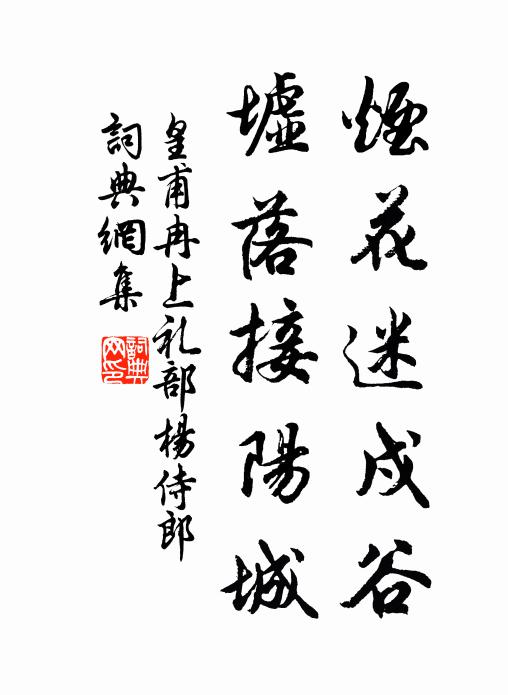 煙花迷戍谷
墟落接陽城
皇甫冉上礼部楊侍郎
詞典網集